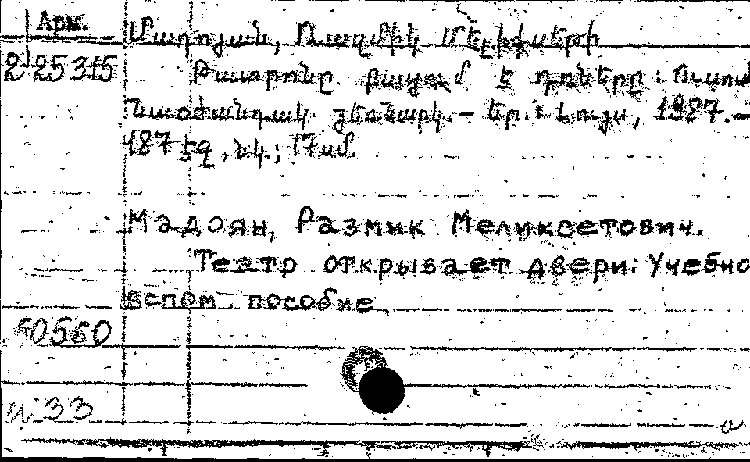 Арм.
Մադոյան, Ռազմիկ Մելիքսեթի
225315
Թատրոնը բացում է դռները: Ուսում
օժանդակ ձեռնարկ. – Եր.: Լույս, 1987. –
187 էջ, նկ.; 17 սմ.
Мадоян, Размик Меликсетович.
Театр открывает двери: Учебно
вспом. пособие
60560
33